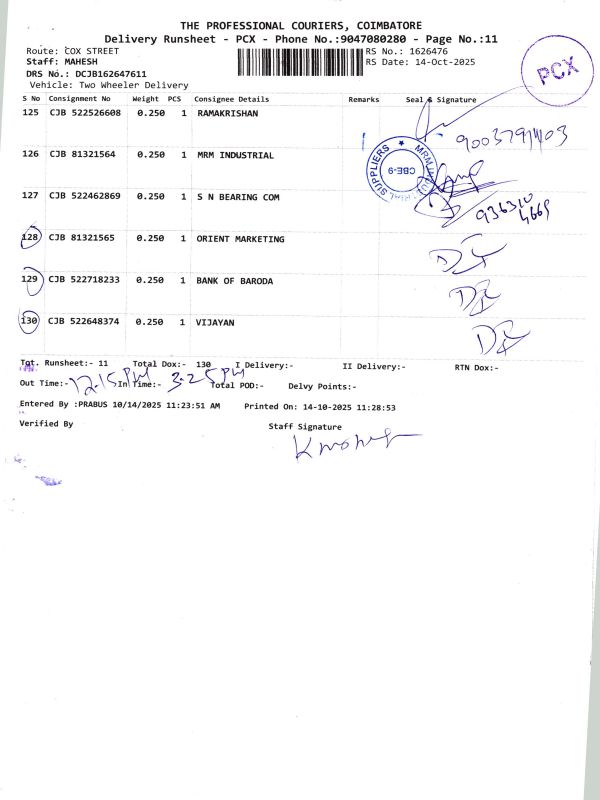 THE PROFESSIONAL COURIERS, COIMBATORE
Delivery Runsheet - PCX - Phone No.:9047080280 - Page No.:11
Route: COX STREET RS No.: 1626476
Staff: MAHESH RS Date: 14-Oct-2025
DRS No.: DCJB162647611
Vehicle: Two Wheeler Delivery
PCX
S No Consignment No Weight PCS Consignee Details Remarks Seal & Signature
125 CJB 522526608 0.250 1 RAMAKRISHAN
126 CJB 81321564 0.250 1 MRM INDUSTRIAL
SUPPLIERS CBE-9
127 CJB 522462869 0.250 1 S N BEARING COM
936310
4669
128 CJB 81321565 0.250 1 ORIENT MARKETING
129 CJB 522718233 0.250 1 BANK OF BARODA
130 CJB 522648374 0.250 1 VIJAYAN
Tot. Runsheet:- 11 Total Dox:- 130 I Delivery:- II Delivery:- RTN Dox:-
Out Time:- 12.15 PM In Time:- 3.25 PM Total POD:- Delvy Points:-
Entered By :PRABUS 10/14/2025 11:23:51 AM Printed On: 14-10-2025 11:28:53
Verified By Staff Signature